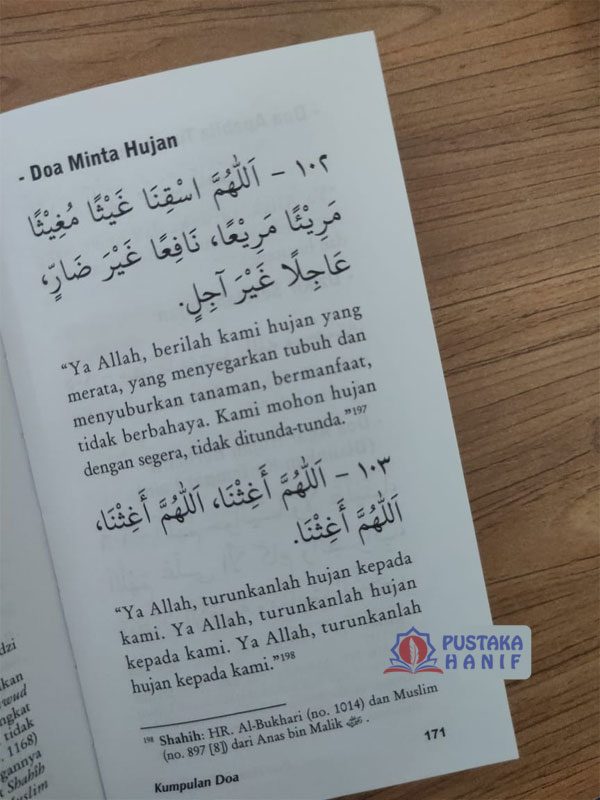 - Doa Minta Hujan
١٠٢ – اَللّٰهُمَّ اسْقِنَا غَيْثًا مُغِيْثًا
مَرِيْئًا مَرِيْعًا، نَافِعًا غَيْرَ ضَارٍّ،
عَاجِلًا غَيْرَ آجِلٍ.
“Ya Allah, berilah kami hujan yang
merata, yang menyegarkan tubuh dan
menyuburkan tanaman, bermanfaat,
tidak berbahaya. Kami mohon hujan
dengan segera, tidak ditunda-tunda.”197
١٠٣ – اَللّٰهُمَّ أَغِثْنَا، اَللّٰهُمَّ أَغِثْنَا،
اَللّٰهُمَّ أَغِثْنَا.
“Ya Allah, turunkanlah hujan kepada
kami. Ya Allah, turunkanlah hujan
kepada kami. Ya Allah, turunkanlah
hujan kepada kami.”198
198 Shahih: HR. Al-Bukhari (no. 1014) dan Muslim
(no. 897 [8]) dari Anas bin Malik ﷺ.
Kumpulan Doa
171
PUSTAKA
HANIF
dzi
kan
wud
ngkat
tidak
1168)
ngannya
Shahih
uslim